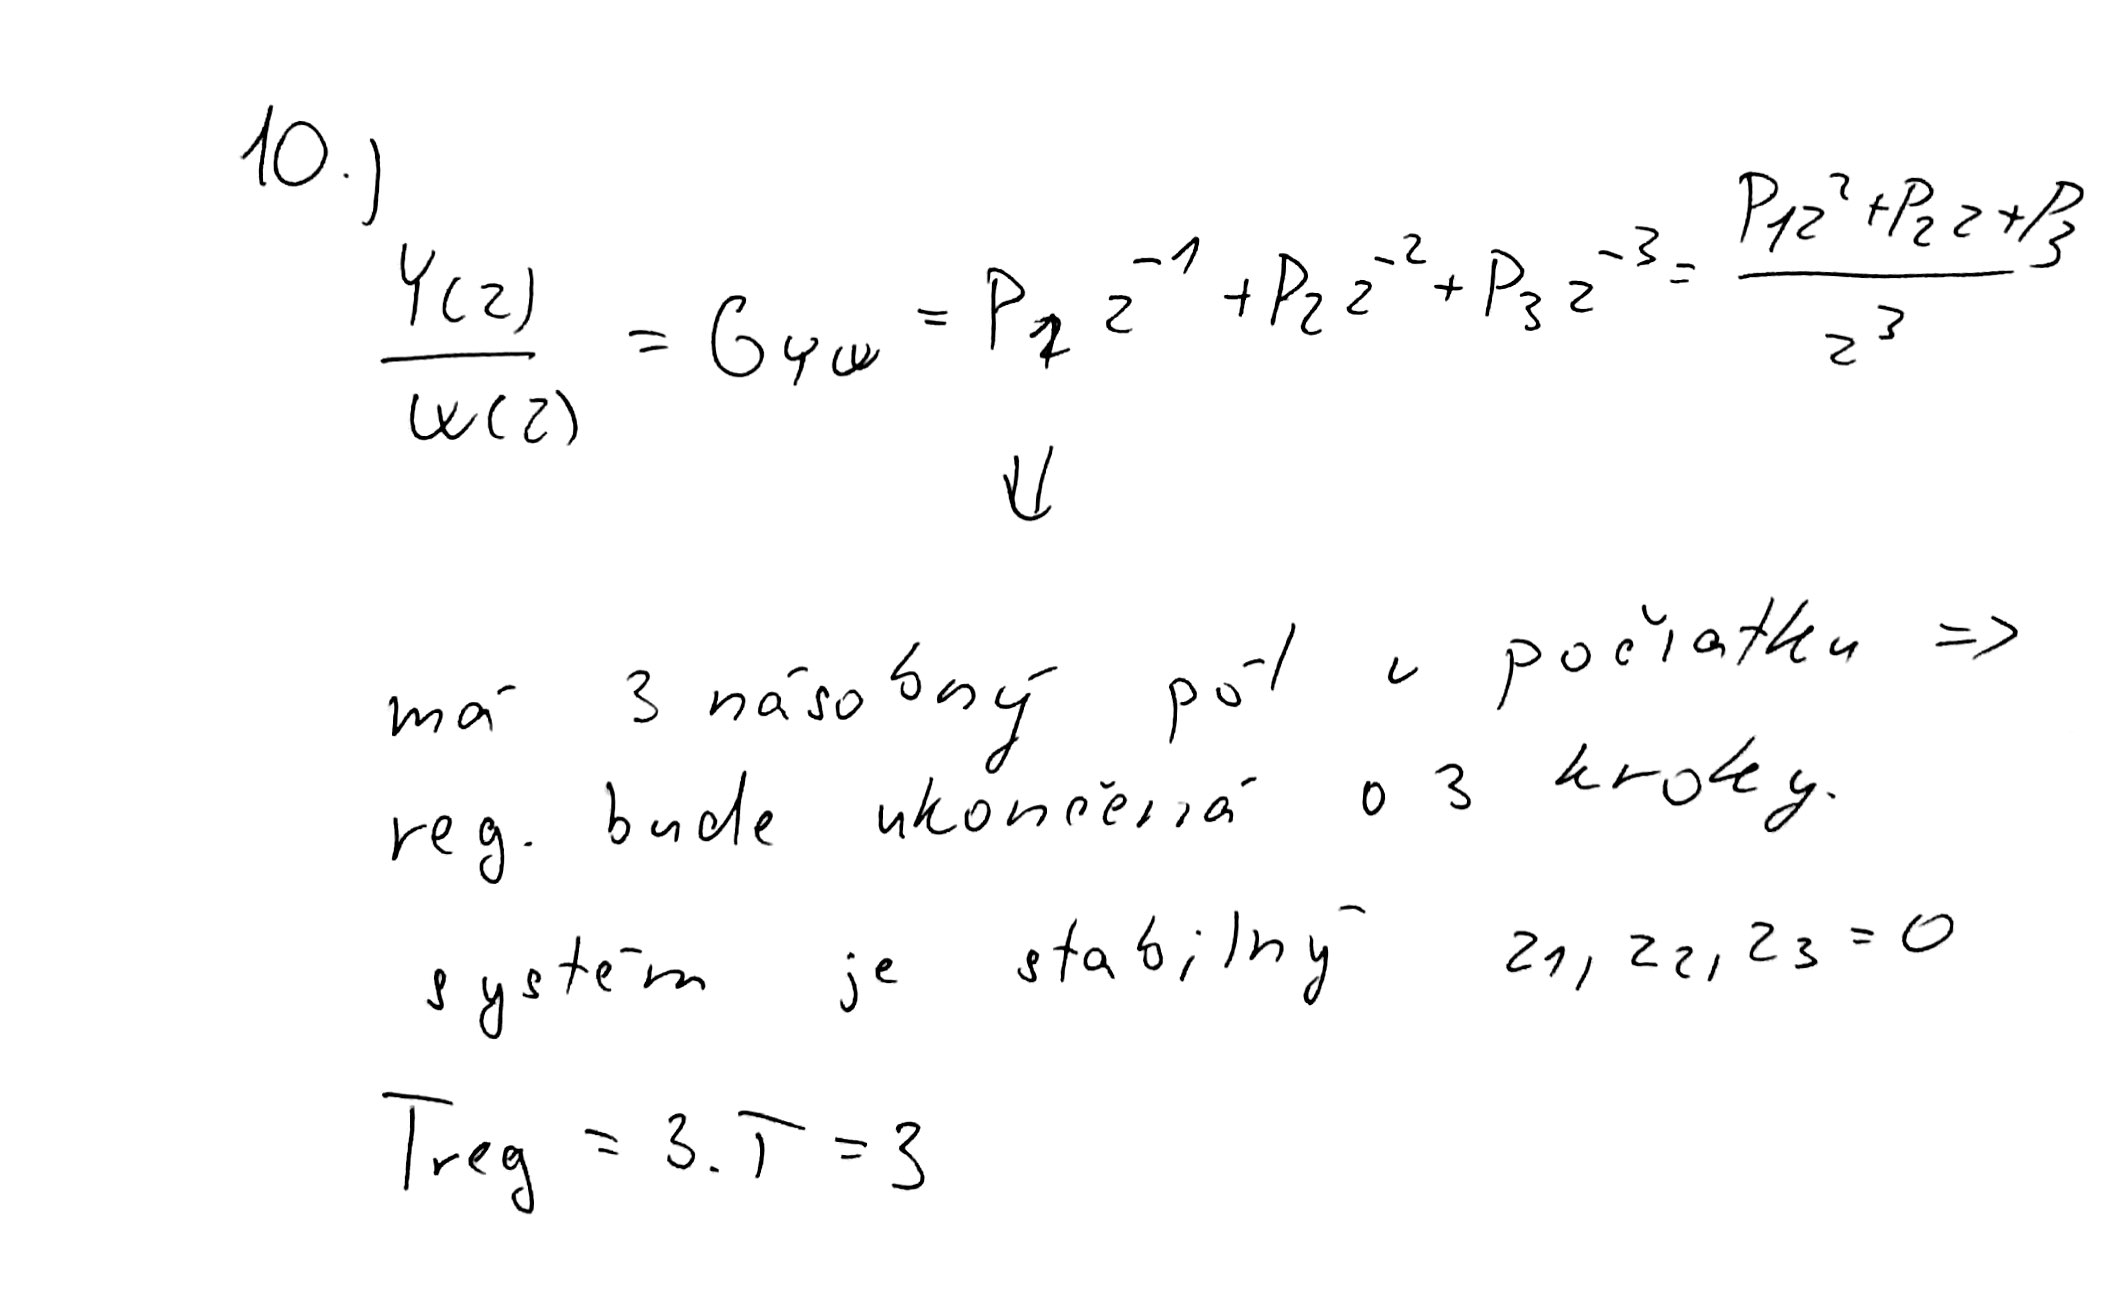 10.)
Y(z) / W(z) = GYW = P1 z^-1 + P2 z^-2 + P3 z^-3 = (P1z^2 + P2 z + P3) / z^3
⇓
má 3 násobný pól v počiatku =>
reg. bude ukončená o 3 kroky.
systém je stabilný z1, z2, z3 = 0
Treg = 3.T = 3